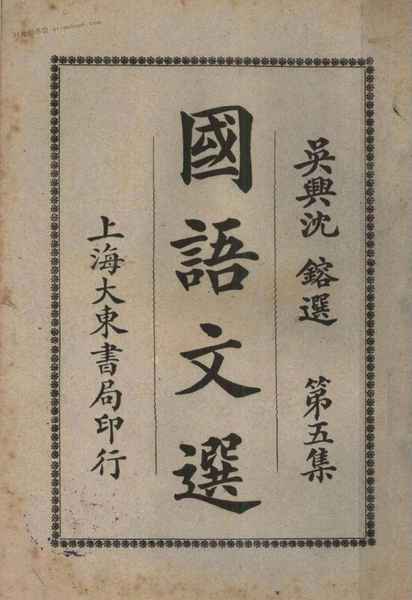 吳興沈鎔選 第五集
國語文選
上海大東書局印行